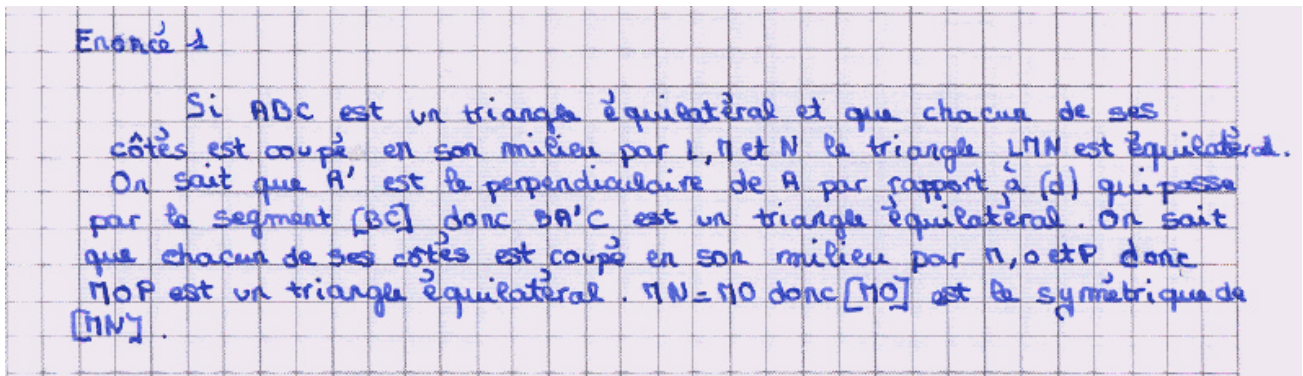 Enoncé 1
Si ABC est un triangle équilatéral et que chacun de ses
côtés est coupé en son milieu par L, M et N le triangle LMN est équilatéral.
On sait que A' est le perpendiculaire de A par rapport à (d) qui passe
par le segment [BC] donc BA'C est un triangle équilatéral. On sait
que chacun de ses côtés est coupé en son milieu par M, O et P donc
MOP est un triangle équilatéral. MN = MO donc [MO] est le symétrique de
[MN].